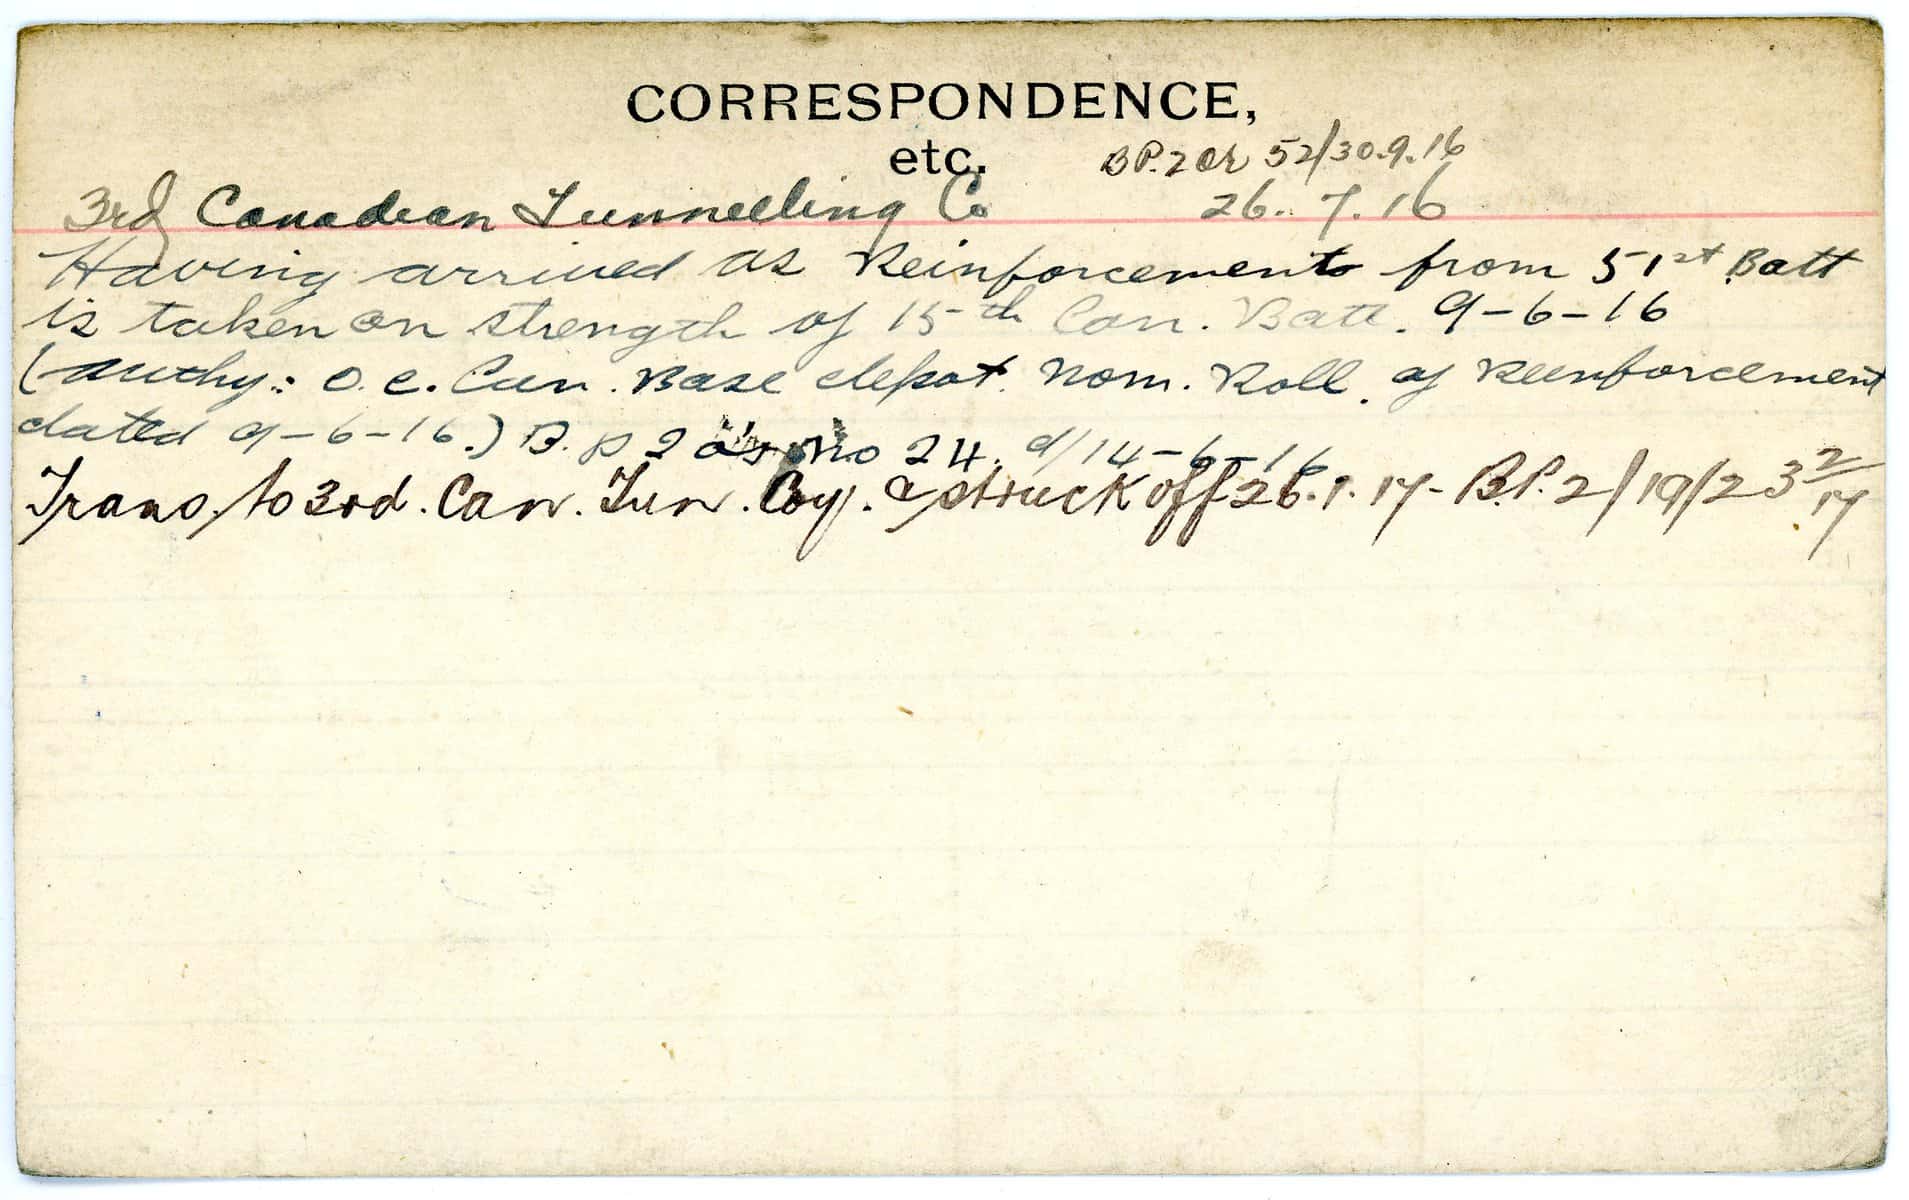 CORRESPONDENCE,
etc. B P. 2 Or 52/30.9.16
3rd Canadian Tunnelling Co 26. 7. 16
Having arrived as Reinforcements from 51st Batt
is taken on strength of 15th Can. Batt. 9-6-16
(Authy: O. C. Can. Base depot. Nom. Roll of Reinforcement
dated 9-6-16.) B. P 2 o's No 24. d/14-6-16
Trans. to 3rd. Can. Tun. Coy. & struck off 26.1.17- B.P. 2/19/23 2/17